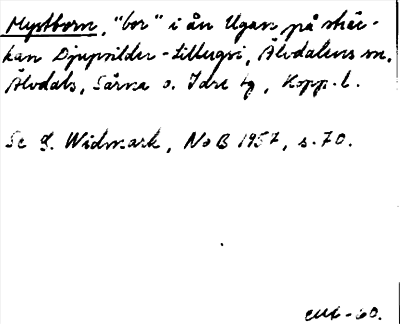 Mystborn, "bor" i ån Ugan på sträc-
kan Djupvilder - Lillugsi, Älvdalens sn,
Älvdals, Särna o. Idre tg, Kopp. l.
Se G. Widmark, NoB 1957, s. 70.
-60.